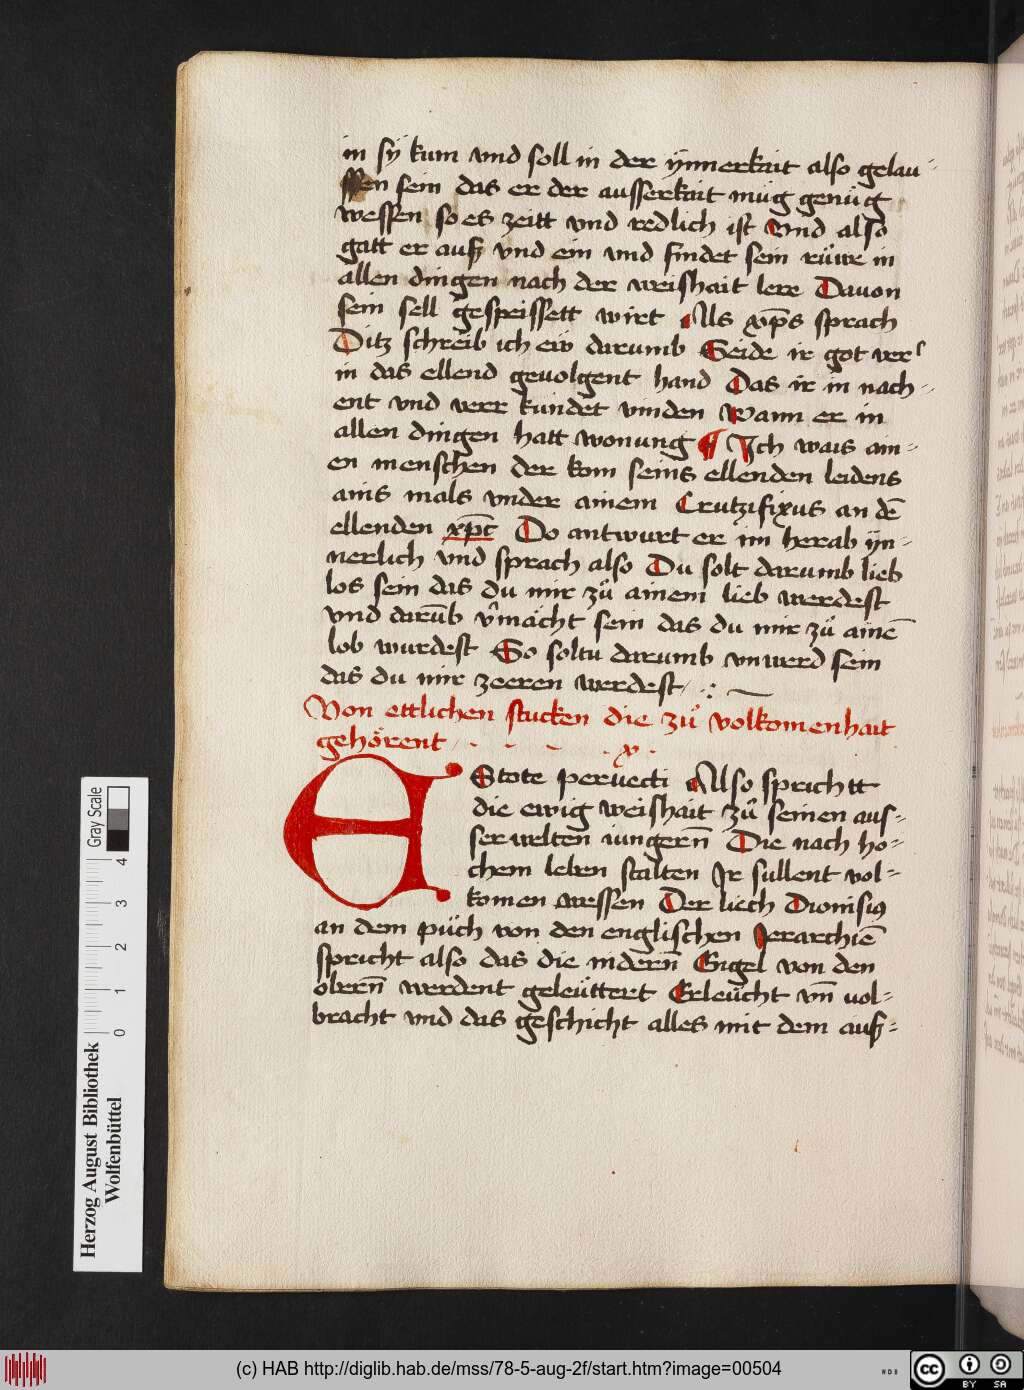 in sÿ kum vnd soll in der ÿnnerkait also gelau-
ssen sein das er der ausserkait müg genüg
wessen so es zeitt vnd redlich ist Vnd also
gatt er auß vnd ein vnd findet sein růwe in
allen dingen nach der weishait lere Dauon
sein sell gespeissett wirt Als xp̄s sprach
Ditz schreib ich ew darumb Seide ir got verr
in das ellend geuolgent hand Das ir in nach-
ent vnd verr kündet vinden Wann er in
allen dingen hatt wonung ¶ Ich wais ain-
en menschen der kom seins ellenden leidens
ains mals vnder ainem Crutzifixus an dē
ellenden xp̄c Do antwurt er im herab ÿn-
nerlich vnd sprach also Du solt darumb lieb
los sein das du mir zů ainem lieb werdest
vnd darūb v̂mächt sein das du mir zů ainē
lob wurdest So soltu darumb vnwerd sein
das du mir zeeren werdest
Von ettlichen stucken die zů volkomenhait
gehörent
EStote pervecti Also sprichtt
die ewig weishait zů seinen aus-
serwelten iungern̄ Die nach ho-
chem leben stalten Ir sullent vol-
komen wessen Der liech Dionisius
an dem püch von den englischen Ierarchiē
spricht also das die indern̄ Engel von den
obern̄ werdent geleüttert Erleücht vn̄ uol-
bracht vnd das geschicht alles mit dem auß-
Herzog August Bibliothek
Wolfenbüttel
Gray Scale
0 1 2 3 4
(c) HAB http://diglib.hab.de/mss/78-5-aug-2f/start.htm?image=00504
WDB
cc BY SA